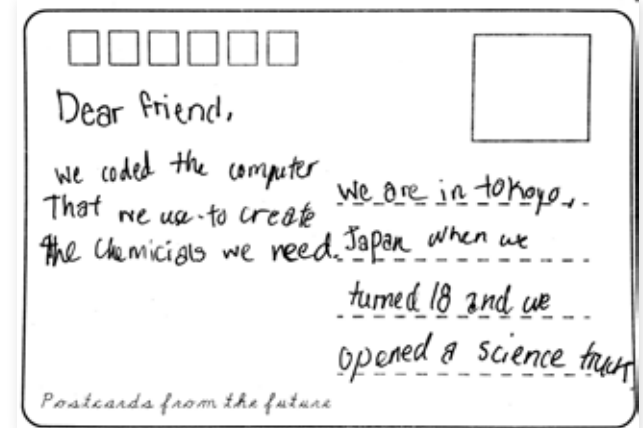 Dear friend,
we coded the computer
That we use to create
the Chemicials we need.
we are in tokoyo,
Japan when we
turned 18 and we
opened a science truck
Postcards from the future